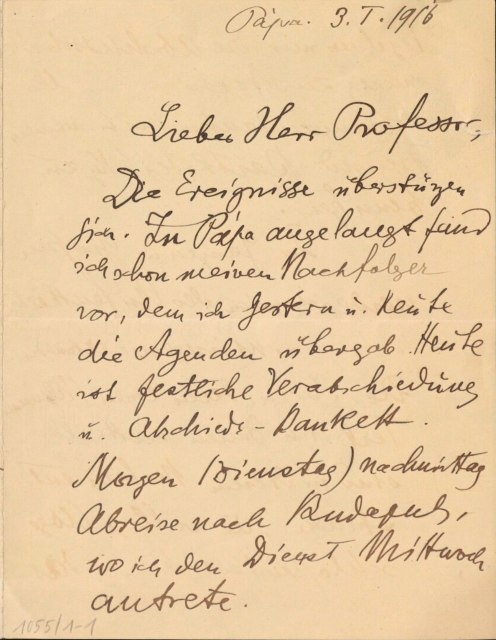 Pápa. 3. I. 1916
Lieber Herr Professor,
Die Ereignisse überstürzen
sich. In Pápa angelangt fand
ich schon meinen Nachfolger
vor, dem ich gestern u. heute
die Agenden übergab. Heute
ist festliche Verabschiedung
u. Abschieds-Bankett.
Morgen (Dienstag) nachmittag
Abreise nach Budapest,
wo ich den Dienst Mittwoch
antrete.
1055/1-1